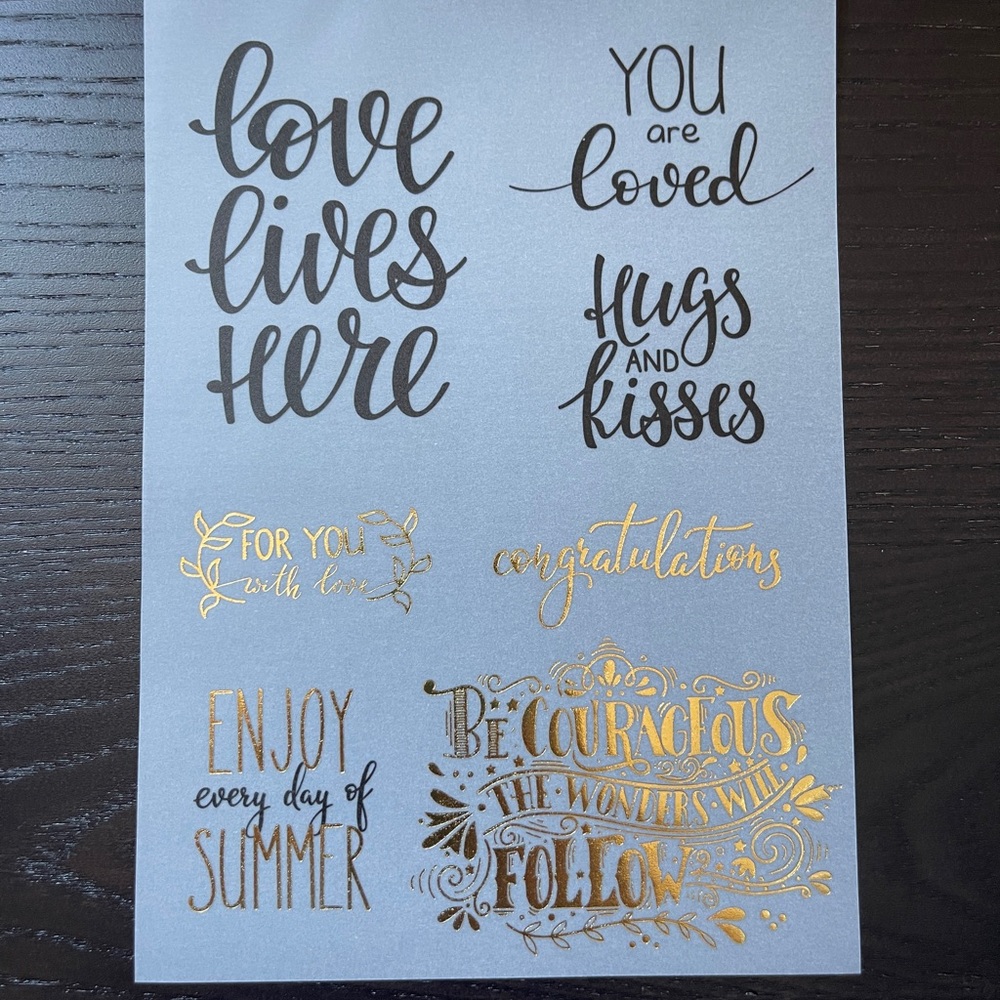 love
lives
Here
YOU
are
loved
Hugs
AND
kisses
FOR YOU
with love
congratulations
ENJOY
every day of
SUMMER
BE COURAGEOUS,
THE·WONDERS·WILL
FOLLOW